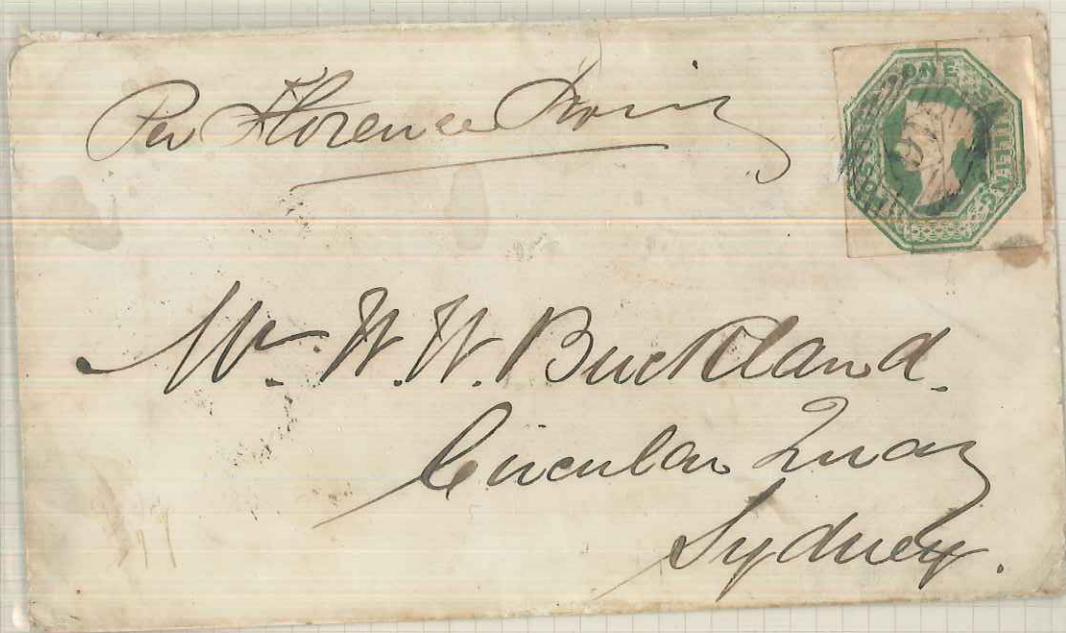 Per Florence Irving
POSTAGE ONE SHILLING
Mr. W. W. Buckland.
Circular Quay
Sydney.